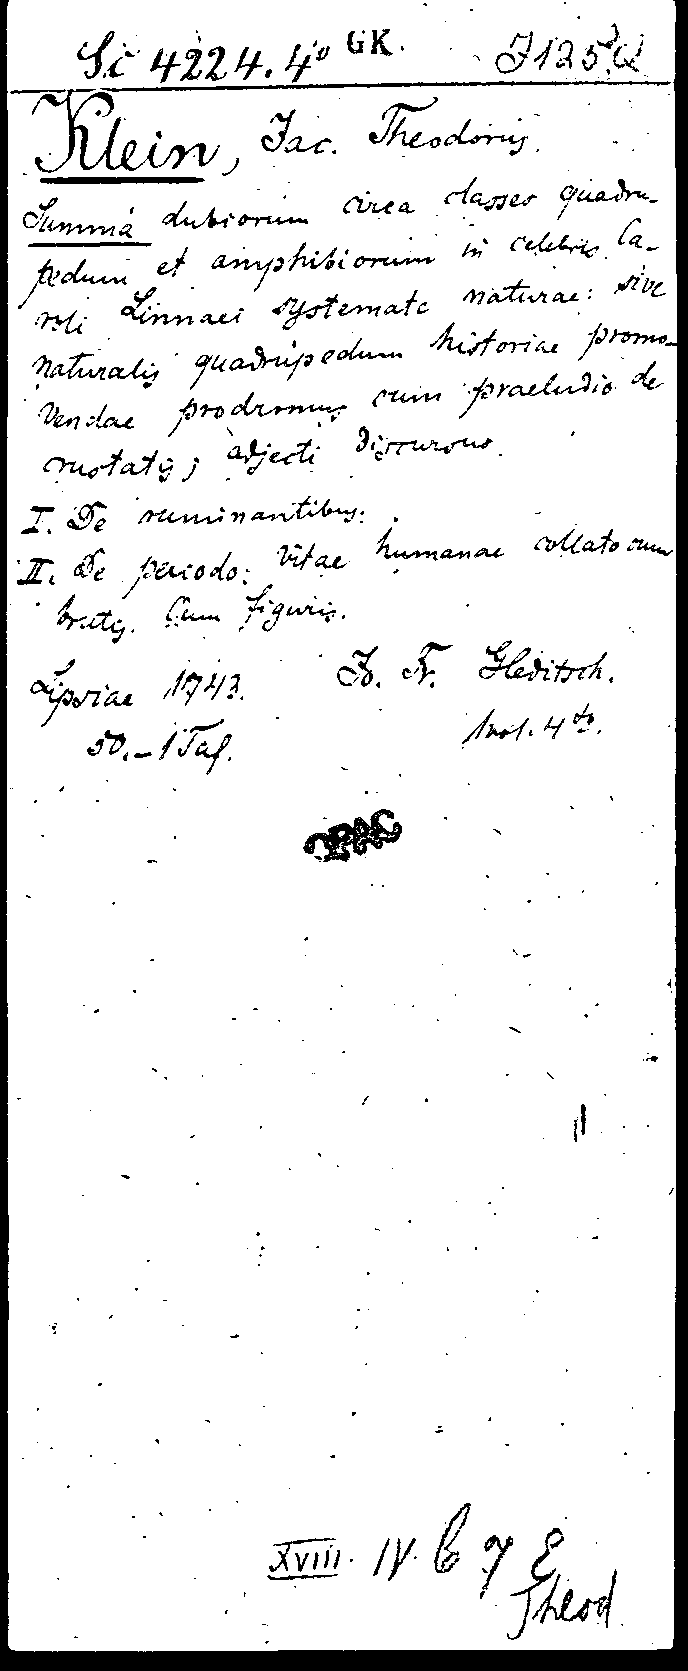 Sc 4224. 4° GK. J 125, Q
Klein, Jac. Theodorus.
Summa dubiorum circa classes quadru-
pedum et amphibiorum in celebris Ca-
roli Linnaei systemate naturae: sive
naturalis quadrupedum historiae promo-
vendae prodromus cum praeludio de
crustatis; adjecti discursus.
I. De ruminantibus:
II. De periodo: vitae humanae collato cum
brutis. Cum figuris.
Lipsiae 1743. Jo. Fr. Gleditsch.
50.–1 Taf. 1 vol. 4to.
OPAC
XVIII. IV. C
Theod